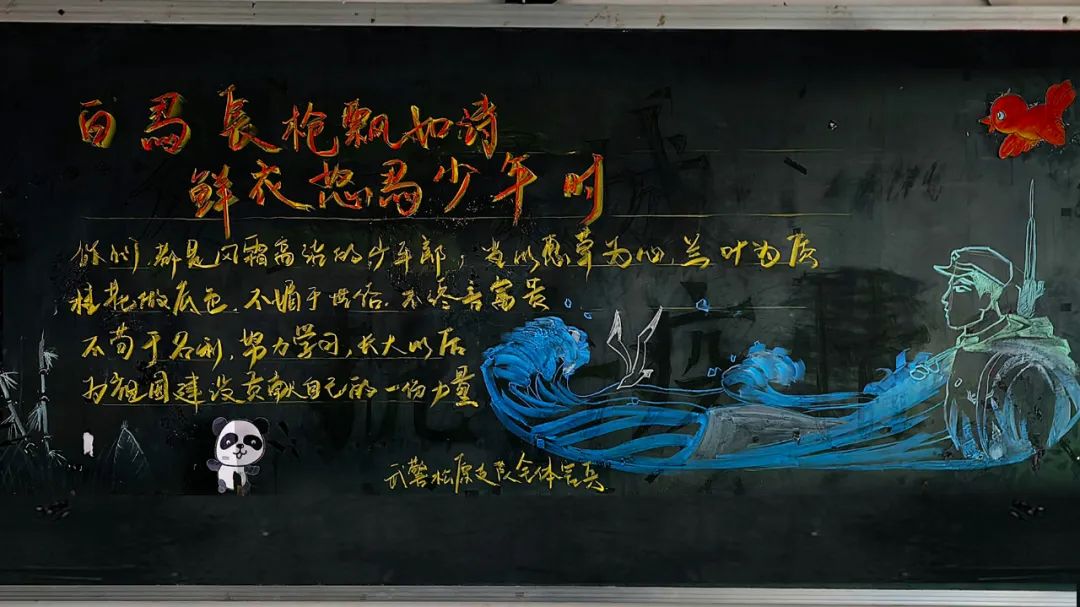 白马长枪飘如诗
鲜衣怒马少年时
你们都是风霜高洁的少年郎，当以蕙草为心，兰叶为质
桂花做底色，不媚于世俗，不终言富贵。
不苟于名利，努力学习，长大以后
为祖国建设贡献自己的一份力量
武警松原支队全体官兵